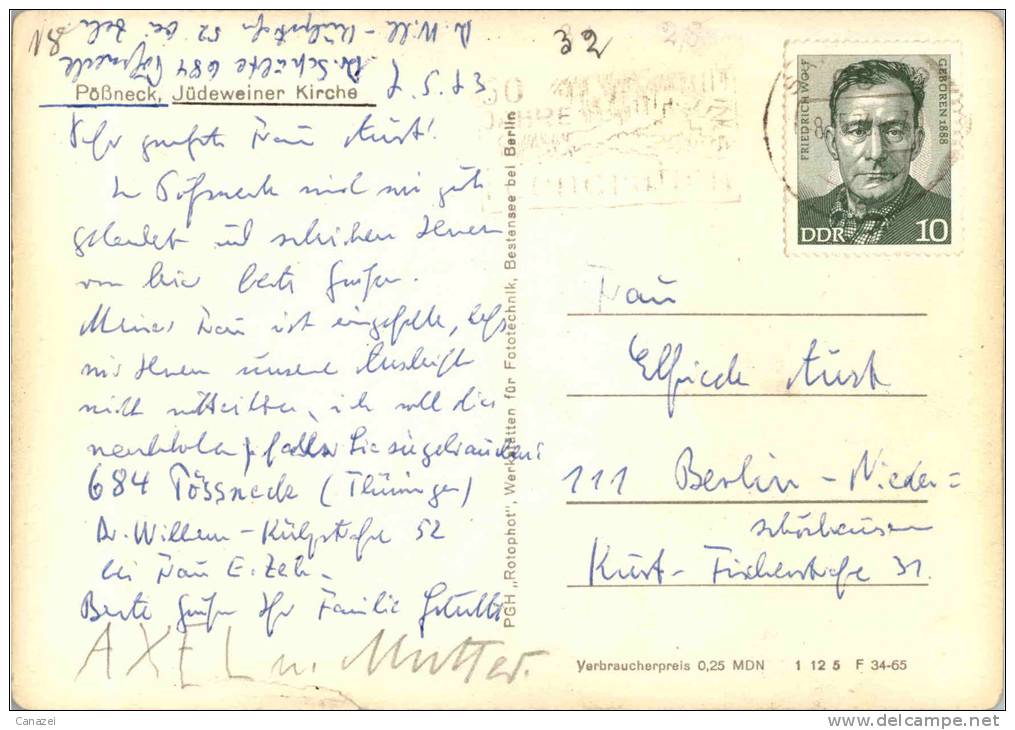 Dr. Schulte 684 Pößneck
Dr. Will.-Külpstraße 52 bei Zeh
7.5.73
Pößneck, Jüdeweiner Kirche
Sehr geehrte Frau Aust!
In Pößneck sind wir gut
gelandet und schicken Ihnen
von hier beste Grüße.
Meiner Frau ist eingefallen, daß
wir Ihnen unsere Anschrift
nicht mitteilten, ich soll dies
nachholen, falls Sie sie gebrauchen:
684 Pössneck (Thüringen)
Dr. Willem-Külpstraße 52
bei Frau E. Zeh.
Beste Grüße Ihr Familie Schulte
AXEL u. Mutter.
PGH „Rotophot", Werkstätten für Fototechnik, Bestensee bei Berlin
32
JAHRE
FRIEDRICH WOLF
GEBOREN 1888
DDR 10
Frau
Elfriede Aust
111 Berlin-Nieder=
schönhausen
Kurt-Fischerstraße 31.
Verbraucherpreis 0,25 MDN 1 12 5 F 34-65
Canazei
www.delcampe.net